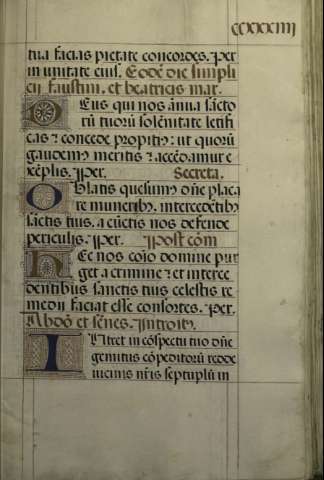 ccxxxiiij
tua facias pietate concordes. Per
in unitate eius. Eodē die simpli
cij faustini. et beatricis mar.
Deus qui nos ānua sācto
rū tuorū solēnitate letifi
cas ⁊ concede propitiꝰ: ut quorū
gaudemꝰ meritis ⁊ accēdamur e
xēplis. Per. Secreta.
Oblatis quesumꝰ dn̄e placa
re muneribꝰ. intercedētibꝰ
sāctis tuis. a cūctis nos defende
periculis. Per. Post cōm
Hec nos cōio domine pur
get a crimine ⁊ et interce
dentibus sanctis tuis celestis re
medij faciat esse consortes. Per.
Abdō et senēs. Introitꝰ.
Intret in cōspectu tuo dn̄e
gemitus cōpeditorū redde
uicinis nr̄is septuplū in